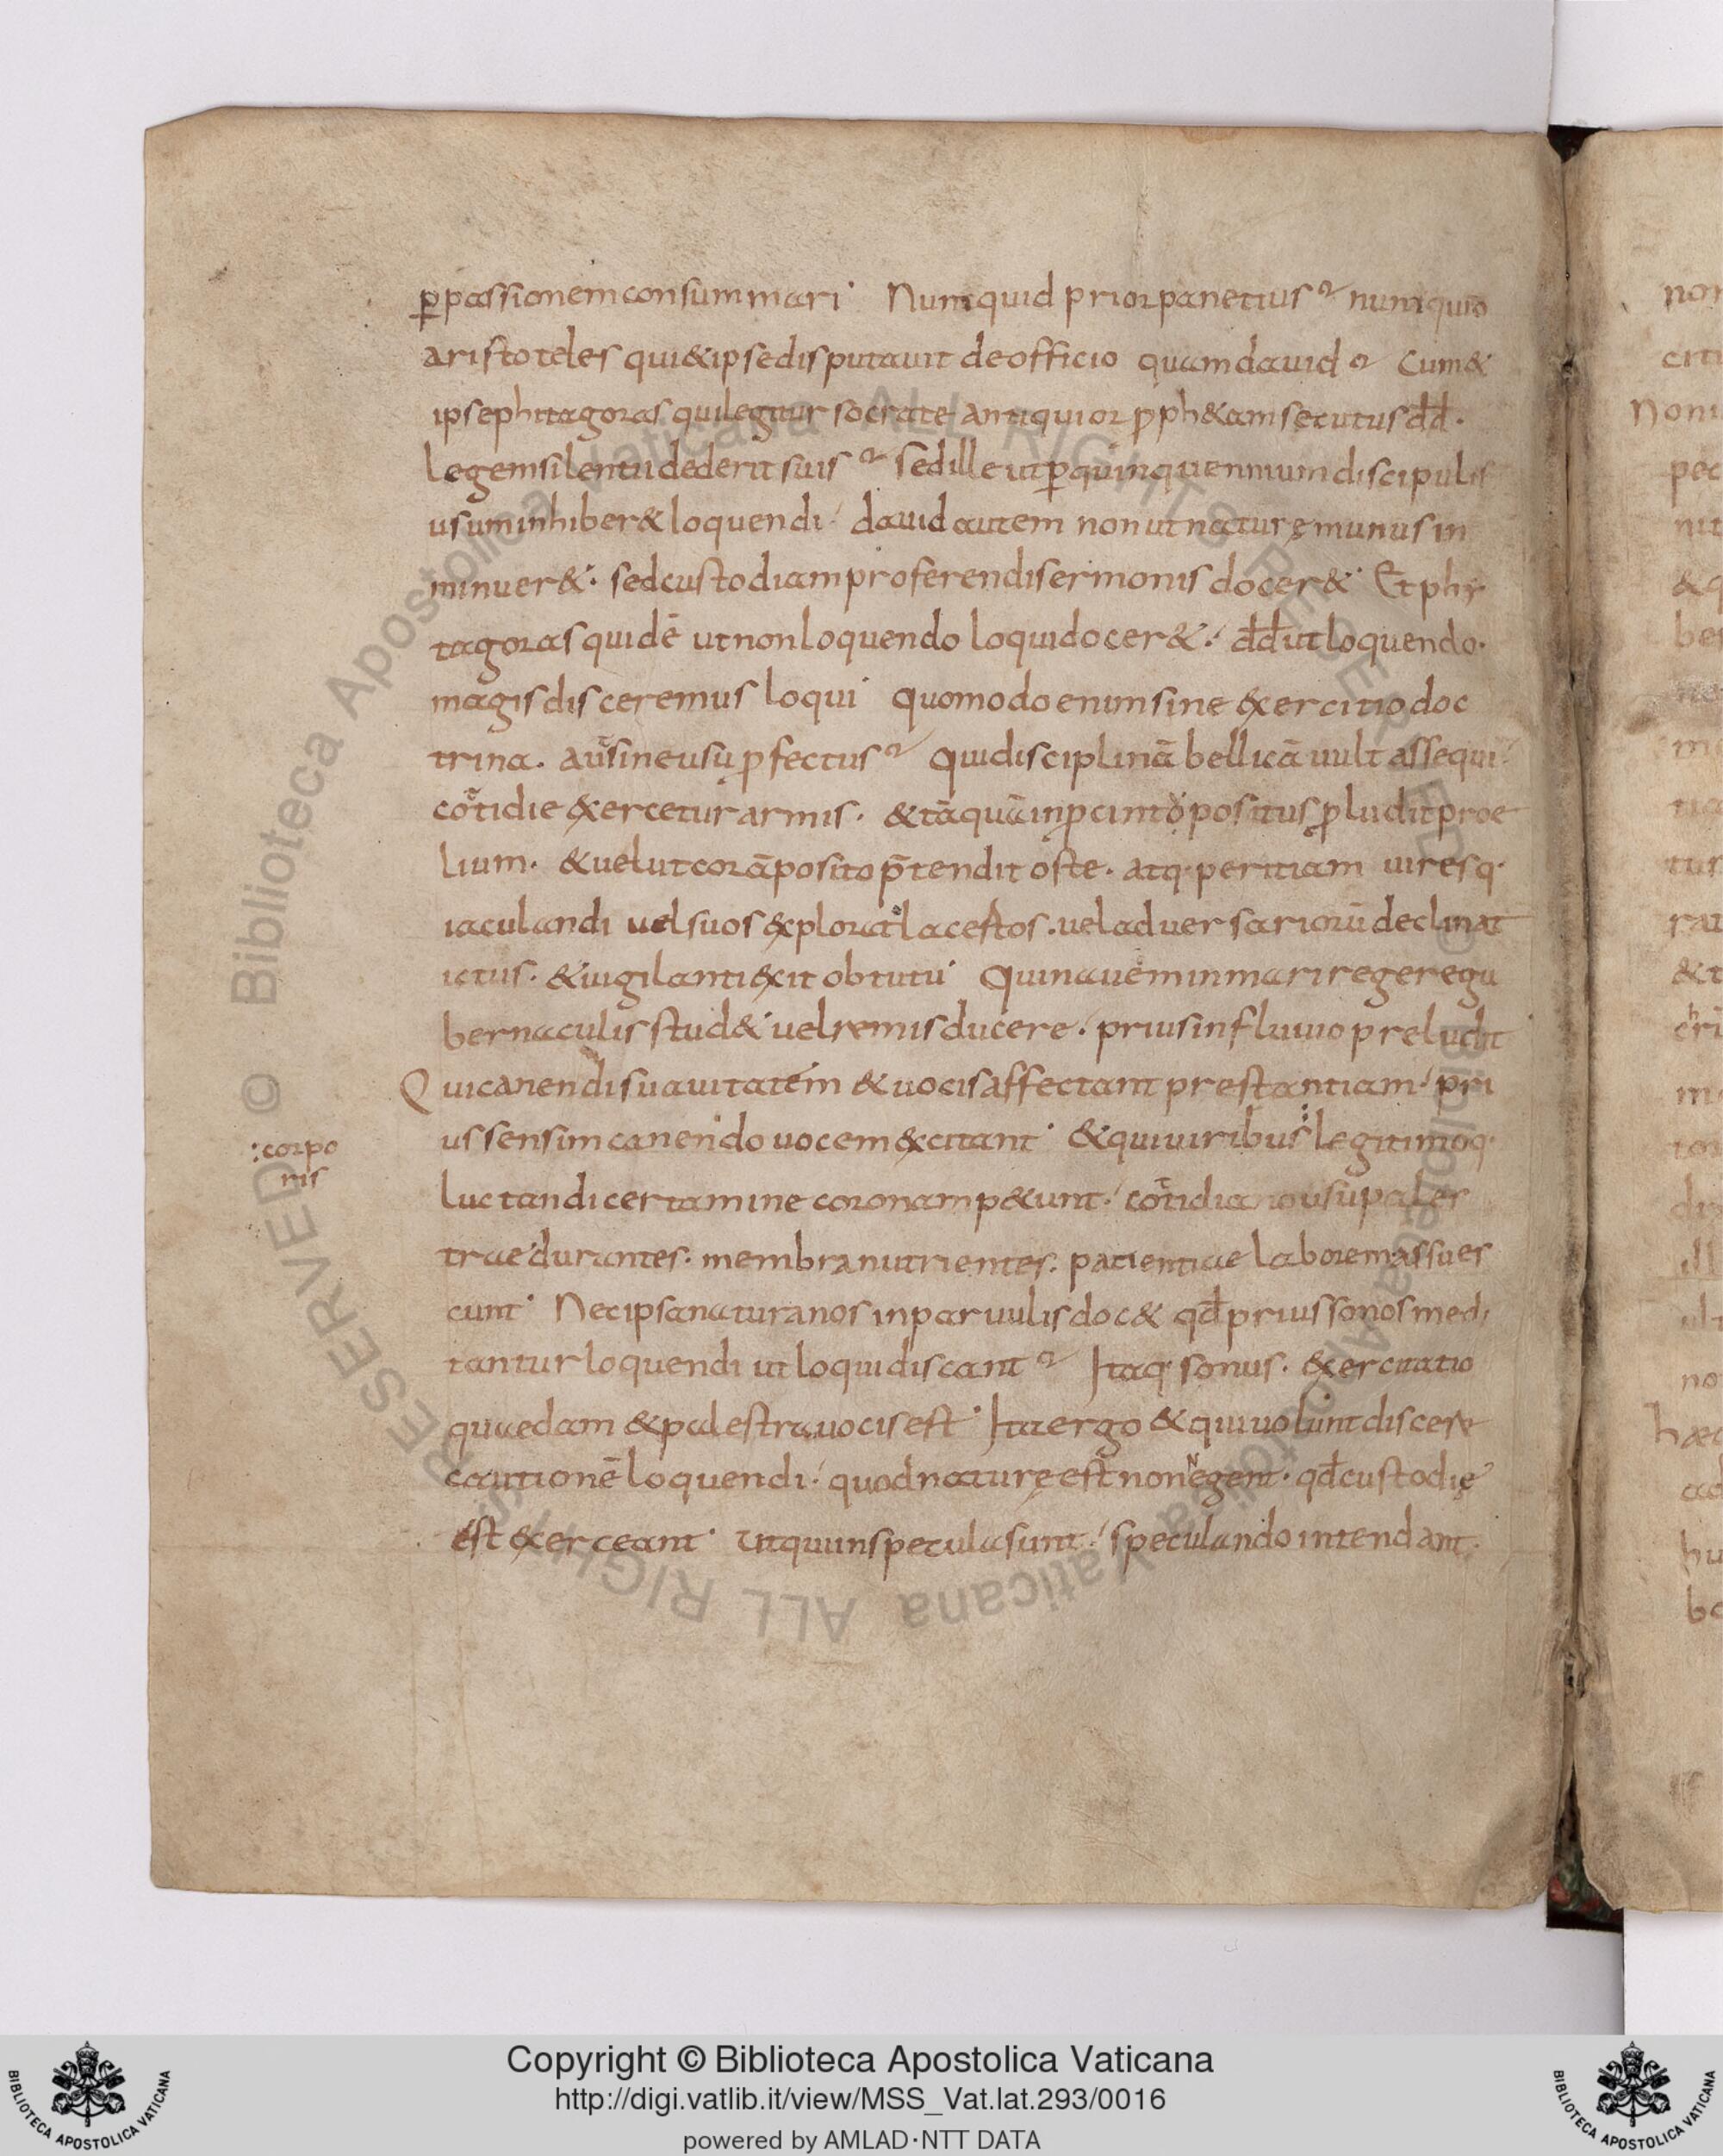 ꝑpassionem consummari· Numquid prior panetius? numquid
aristoteles qui & ipse disputauit de officio quam dauid? Cum &
ipse phitagoras qui legitur socrate antiquior ꝓph&am secutus dd̄·
legem silentii dederit suis? sed ille ut ꝑ quinquennium discipulis
usum inhiber& loquendi· dauid autem non ut naturę munus in
minuer&· sed custodiam proferendi sermonis docer&· Et phy
tagoras quidē ut non loquendo loqui docer&· dd̄ ut loquendo·
magis disceremus loqui· quomodo enim sine exercitio doc
trina· aut sine usu ꝓfectus? qui disciplinā bellicā uult assequi·
cottidie exercetur armis· & tāquā in ꝓcinto positus p̨ludit proe
lium· & uelut corā posito p̄tendit oste· atq· peritiam uiresq·
iaculandi uel suos explorat lacertos· uel aduersariorū declinat
ictus· & uigilanti exit obtutu· Qui nauem in mari regere gu
bernaculis stud& uel remis ducere· prius in fluuio preludit
Qui canendi suauitatem & uocis affectant prestantiam· pri
us sensim canendo uocem excitant· & qui uiribus legitimoq·
:corpo
ris
luctandi certamine coronam p&unt· cottidiano usu pales
trae durantes· membra nutrientes· patientiae laborem assues
cunt· Nec ipsa natura nos in paruulis doc& qd̄ prius sonos medi
tantur loquendi ut loqui discant? Itaq· sonus· exercitatio
quaedam & palestra uocis est· Ita ergo & qui uolunt discere
cautionē loquendi· quod naturę est non negent· qd̄ custodię
est exerceant· ut qui in specula sunt· speculando intendant·
non
&q
Copyright © Biblioteca Apostolica Vaticana
http://digi.vatlib.it/view/MSS_Vat.lat.293/0016
powered by AMLAD·NTT DATA
BIBLIOTECA APOSTOLICA VATICANA
BIBLIOTECA APOSTOLICA VATICANA
© Biblioteca Apostolica Vaticana ALL RIGHTS RESERVED
© Biblioteca Apostolica Vaticana ALL RIGHTS RESERVED